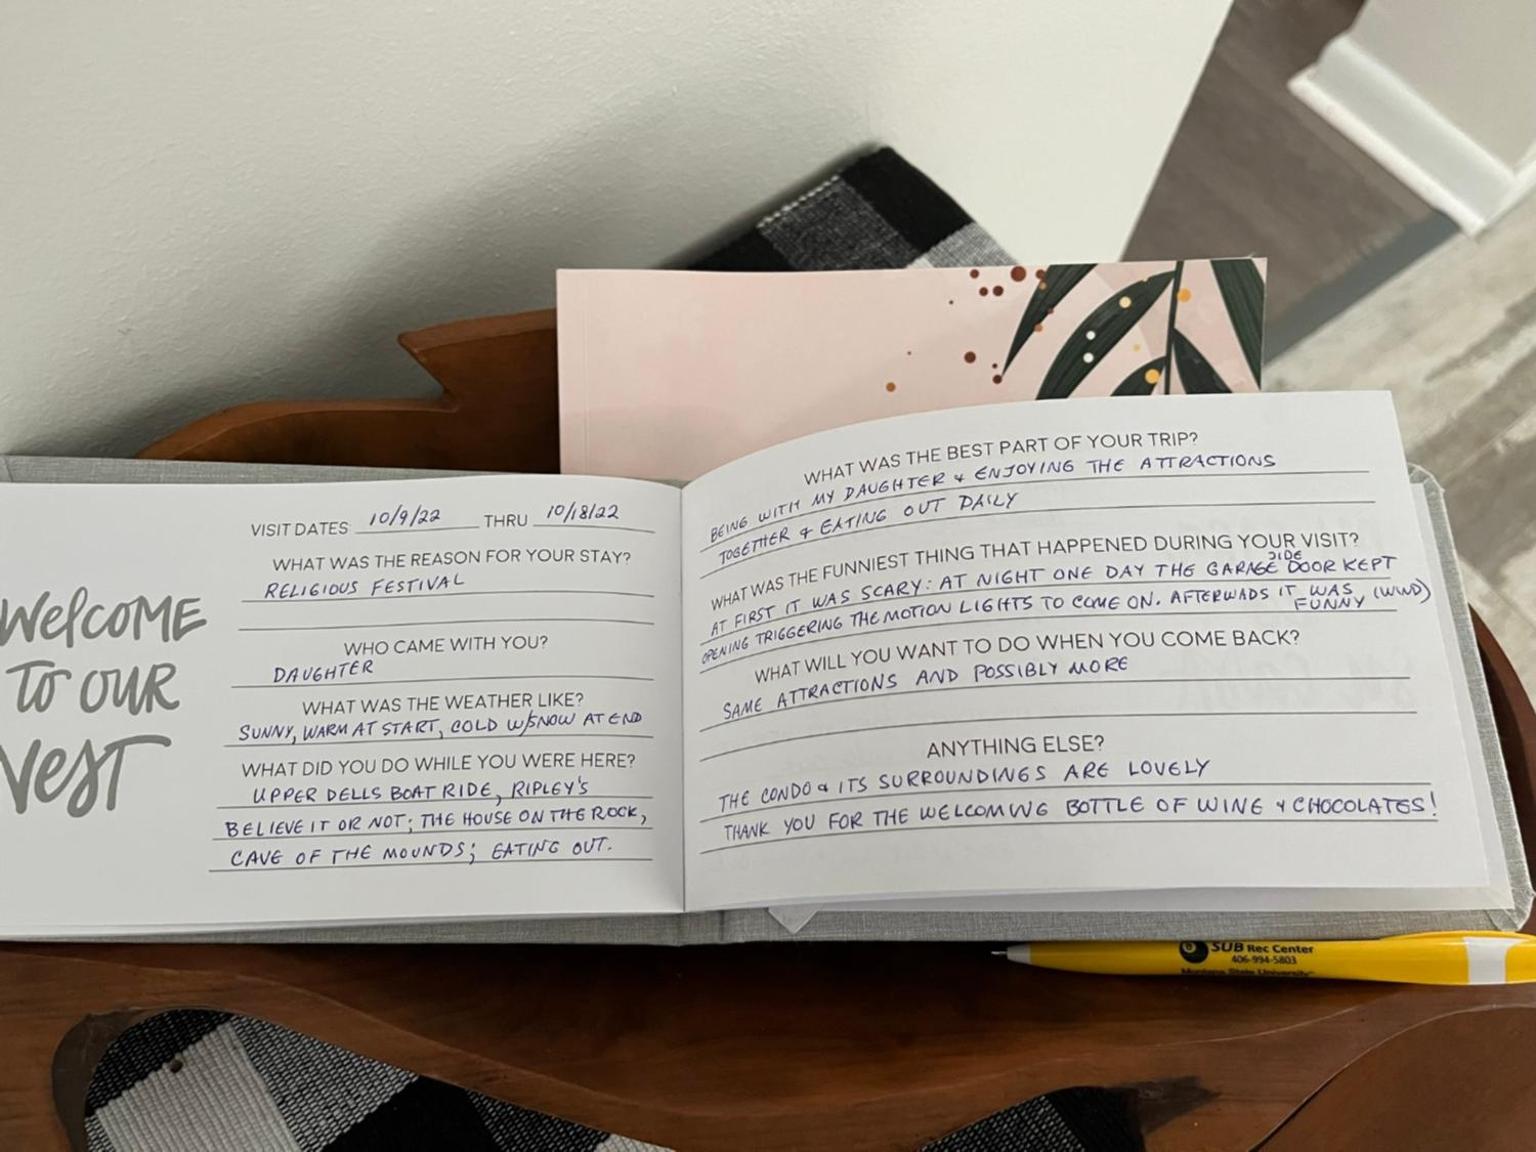 Welcome
to our
Nest
VISIT DATES 10/9/22 THRU 10/18/22
WHAT WAS THE REASON FOR YOUR STAY?
RELIGIOUS FESTIVAL
WHO CAME WITH YOU?
DAUGHTER
WHAT WAS THE WEATHER LIKE?
SUNNY, WARM AT START, COLD W/SNOW AT END
WHAT DID YOU DO WHILE YOU WERE HERE?
UPPER DELLS BOAT RIDE, RIPLEY'S
BELIEVE IT OR NOT; THE HOUSE ON THE ROCK,
CAVE OF THE MOUNDS; EATING OUT.
WHAT WAS THE BEST PART OF YOUR TRIP?
BEING WITH MY DAUGHTER & ENJOYING THE ATTRACTIONS
TOGETHER & EATING OUT DAILY
WHAT WAS THE FUNNIEST THING THAT HAPPENED DURING YOUR VISIT?
AT FIRST IT WAS SCARY: AT NIGHT ONE DAY THE GARAGE SIDE DOOR KEPT
OPENING TRIGGERING THE MOTION LIGHTS TO COME ON. AFTERWADS IT WAS FUNNY (WIND)
WHAT WILL YOU WANT TO DO WHEN YOU COME BACK?
SAME ATTRACTIONS AND POSSIBLY MORE
ANYTHING ELSE?
THE CONDO & ITS SURROUNDINGS ARE LOVELY
THANK YOU FOR THE WELCOMING BOTTLE OF WINE & CHOCOLATES!
8 SUB Rec Center
406-994-5803
Montana State University